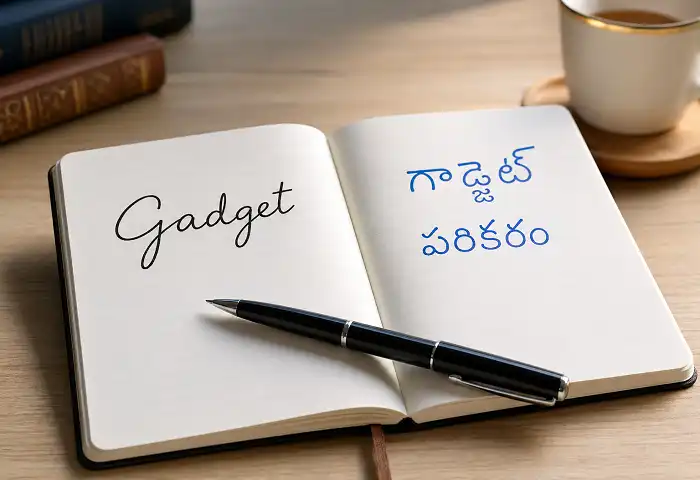 Gadget
గాడ్జెట్
పరికరం